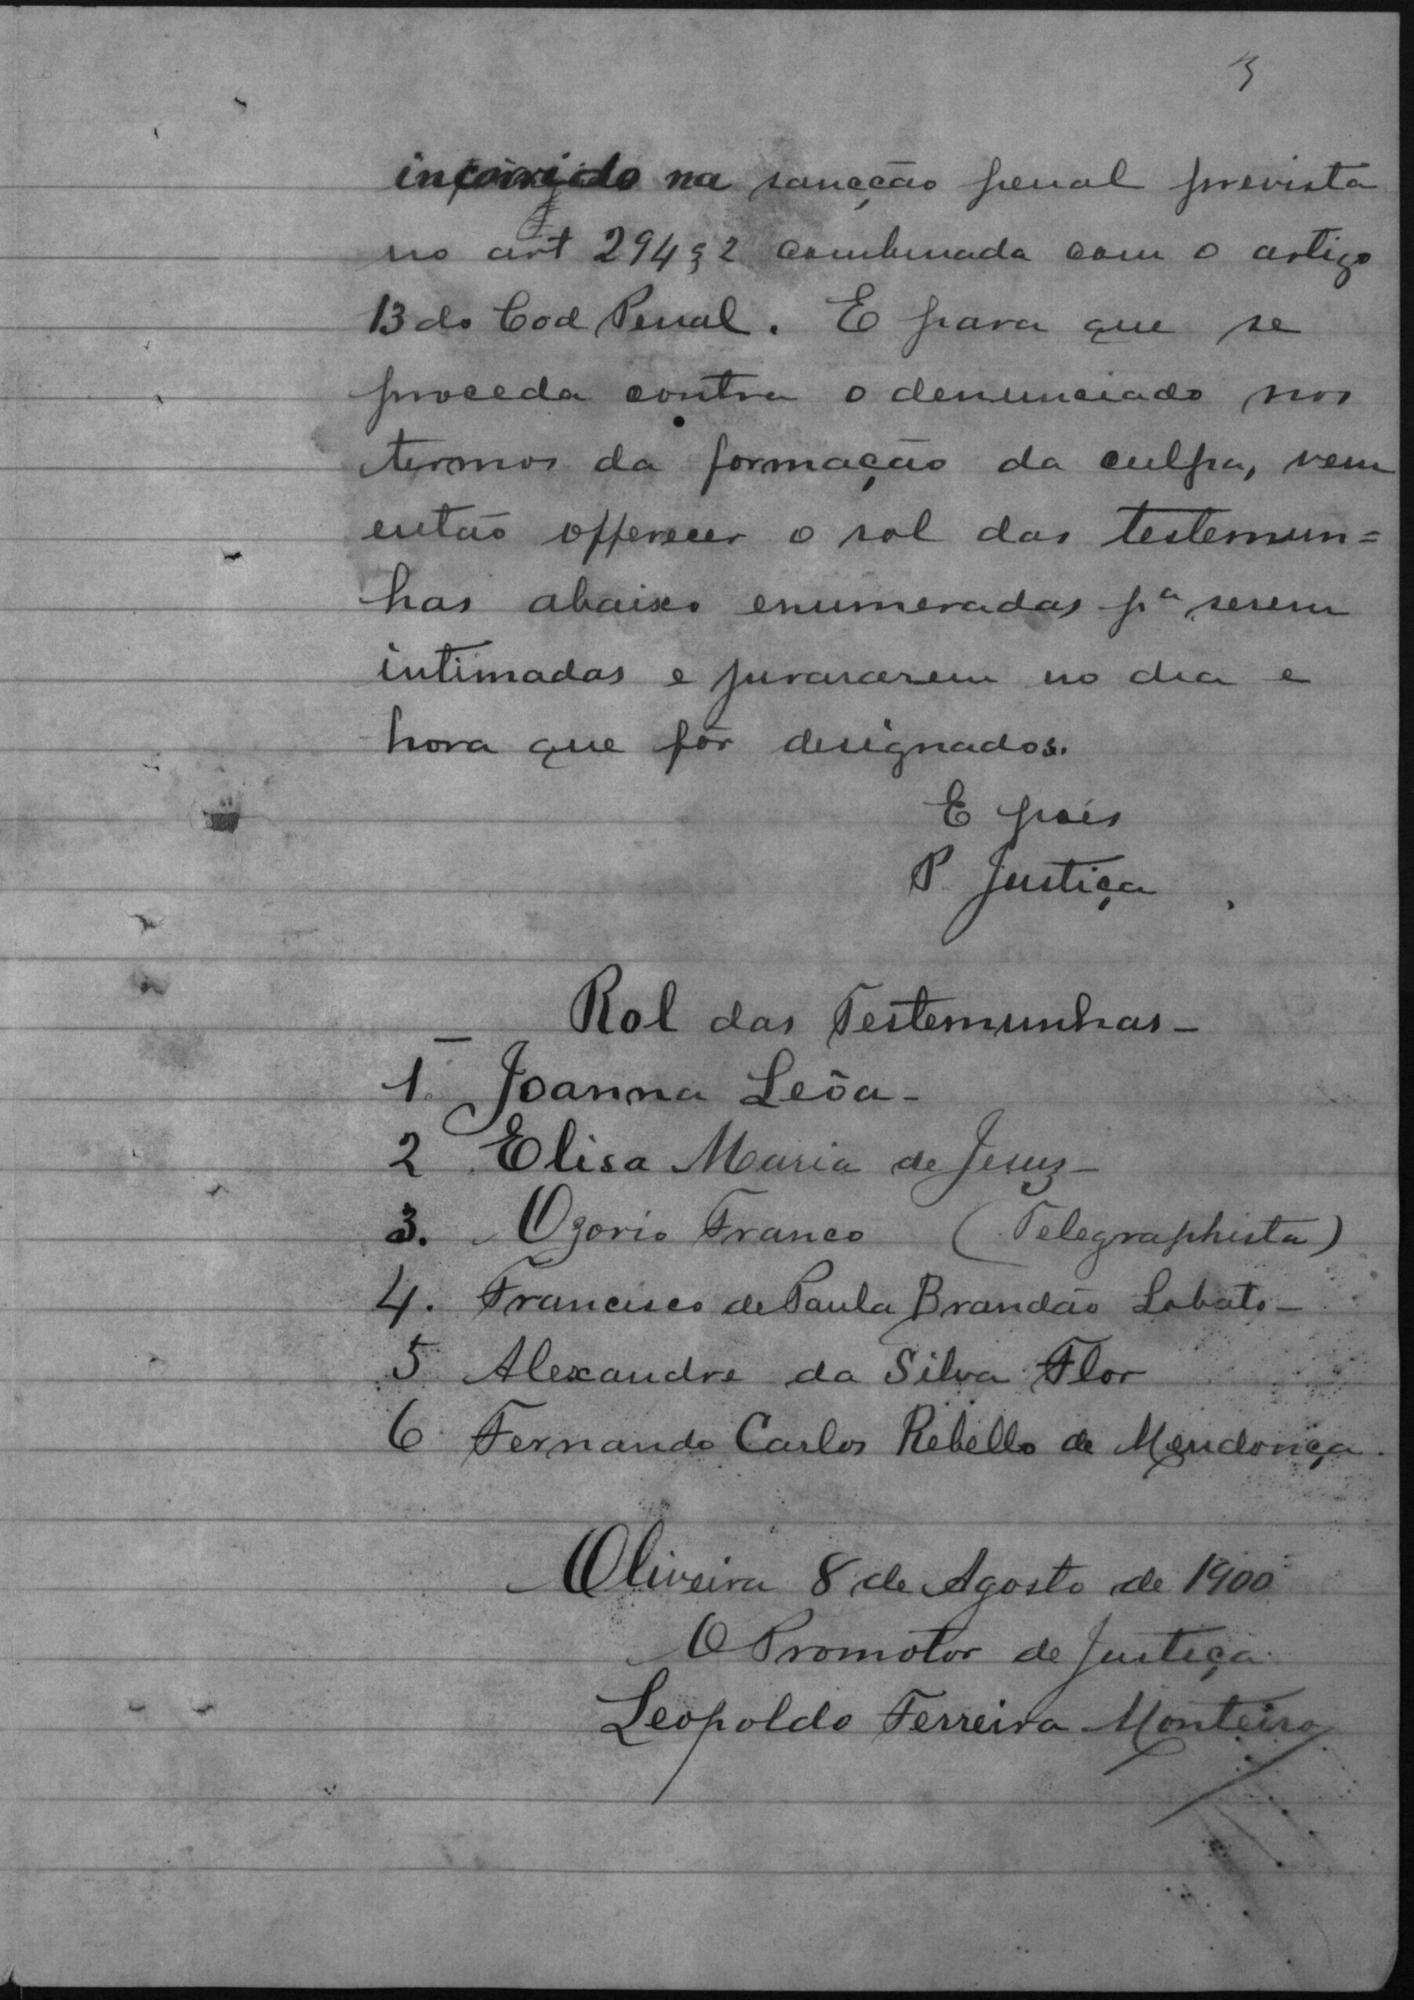 3
incorrido na sancção penal prevista
no art 294 § 2 combinada com o artigo
13 do Cod Penal. E para que se
proceda contra o denunciado nos
termos da formação da culpa, vem
então offerecer o rol das testemun=
has abaixo enumeradas pª serem
intimadas e jurararem no dia e
hora que fôr designados.
E pois
P. Justiça
Rol das Testemunhas -
1. Joanna Leôa -
2 Elisa Maria de Jesus -
3. Ozorio Franco (Telegraphista)
4. Francisco de Paula Brandão Lobato -
5 Alexandre da Silva Flor
6 Fernando Carlos Rebello de Mendonça.
Oliveira 8 de Agosto de 1900
O Promotor de Justiça
Leopoldo Ferreira Monteiro